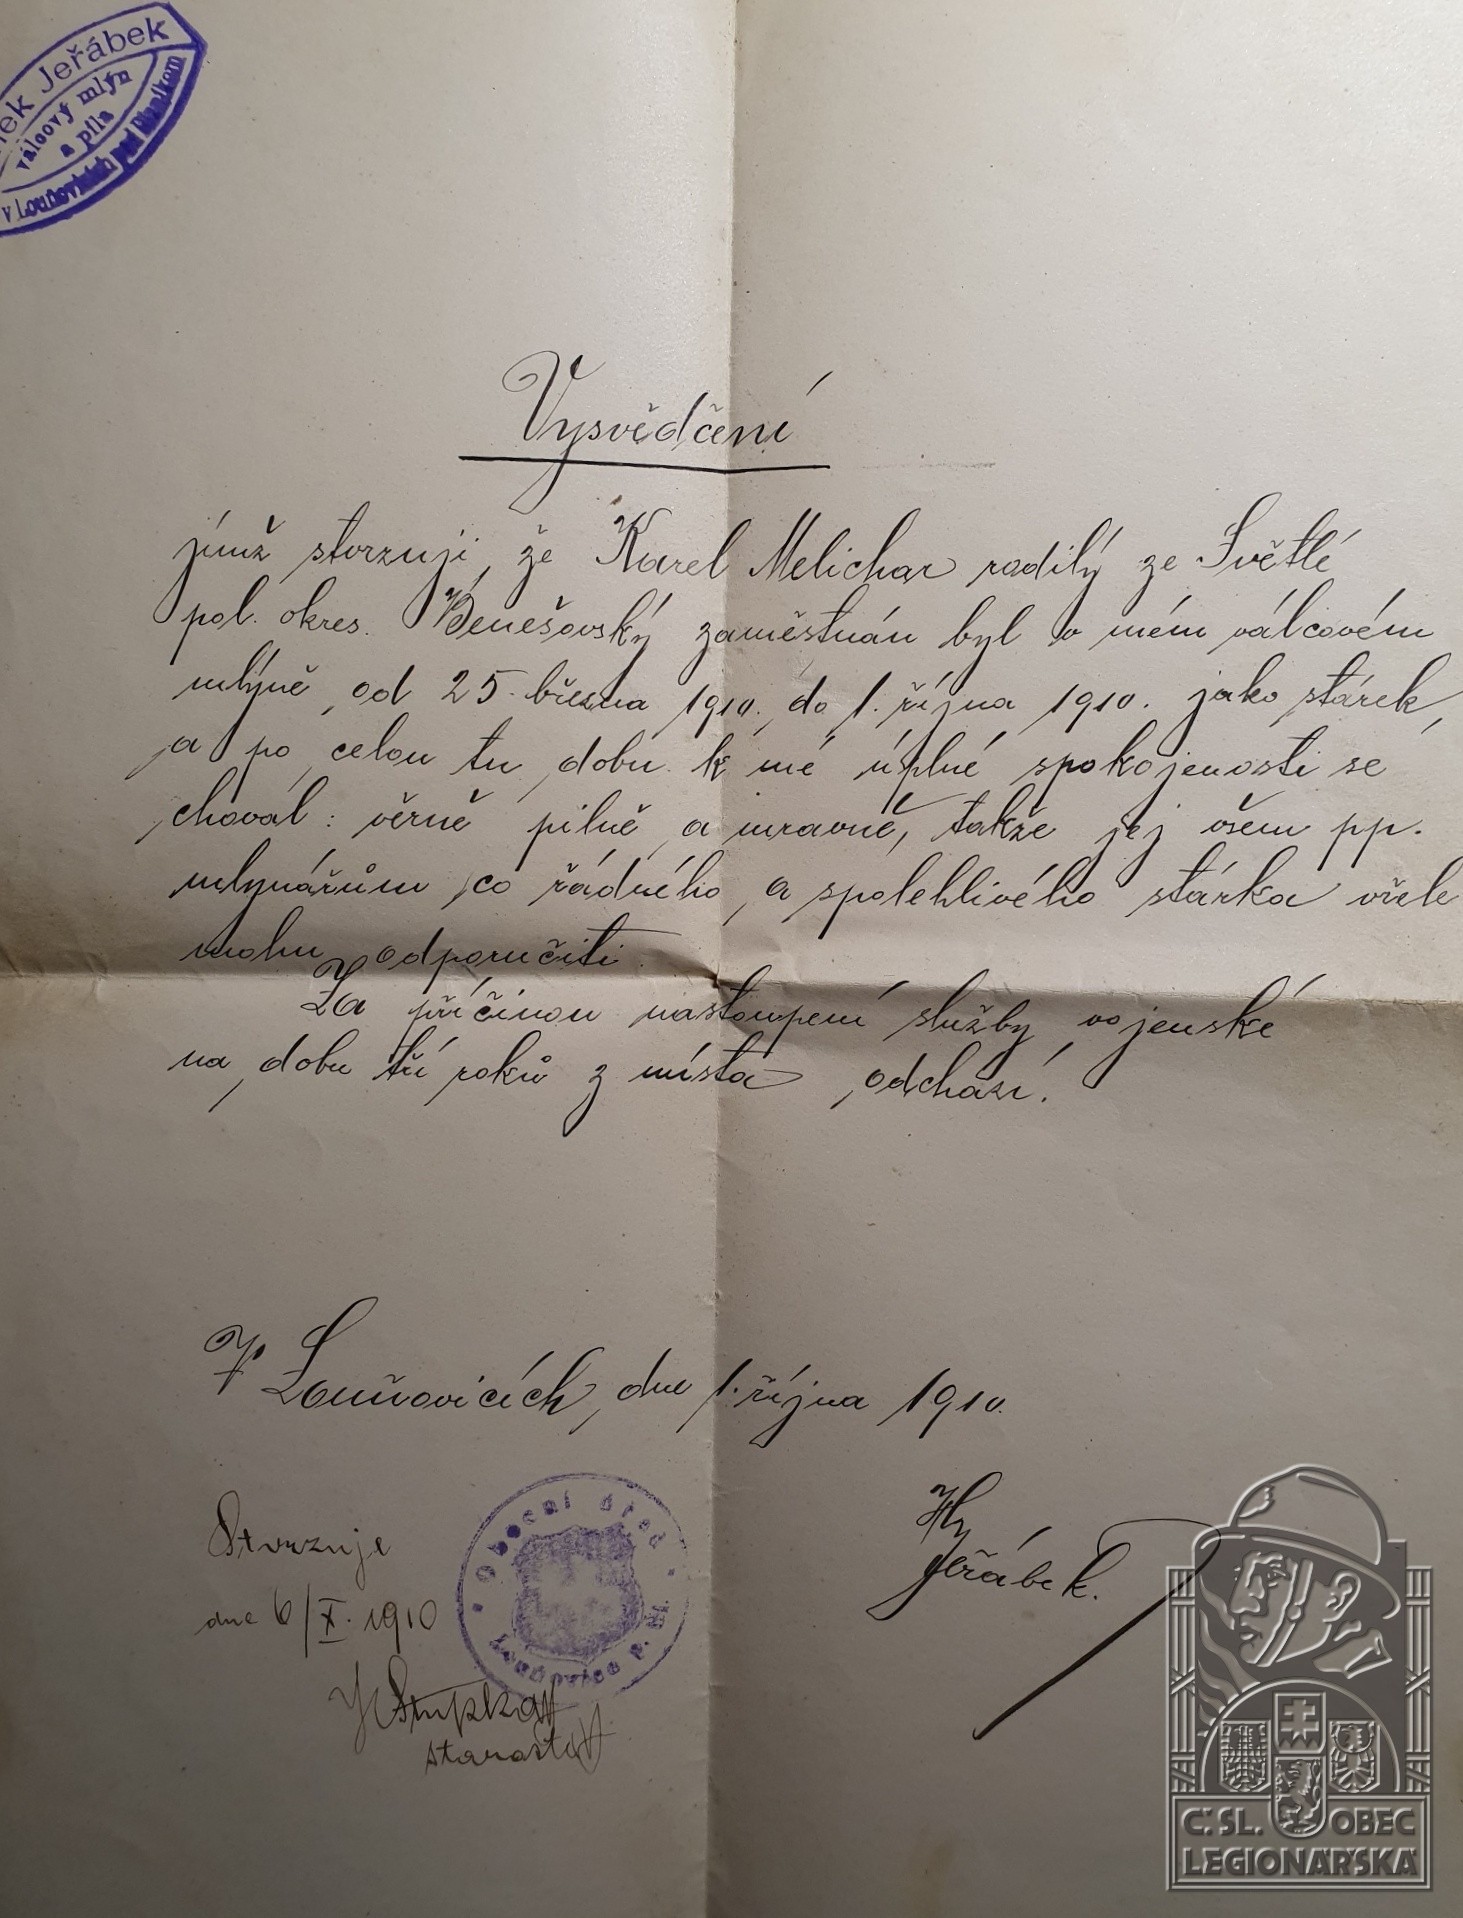 ek Jeřábek
válcový mlýn
a pila
v Louňovicích pod Blaníkem
Vysvědčení
jímž stvrzuji, že Karel Melichar rodilý ze Světlé
pol. okres. Benešovský zaměstnán byl v mém válcovém
mlýně, od 25. března 1910. do 1. října 1910. jako stárek,
a po celou tu dobu k mé úplné spokojenosti se
choval: věrně pilně a mravně, takže jej všem pp.
mlynářům co řádného, a spolehlivého stárka vřele
mohu odporučiti.
Za příčinou nastoupení služby vojenské
na dobu tří roků z místa odchází.
V Louňovicích, dne 1. října 1910.
Hy
Jeřábek.
Stvrzuje
dne 6/X. 1910
Obecní úřad
Louňovice p. Bl.
Stupka
starosta
Č. SL. OBEC
LEGIONÁŘSKÁ